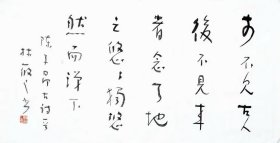 前不見古人
後不見來
者念天地
之悠々獨愴
然而涕下
陳子昂古詩
林筱之書